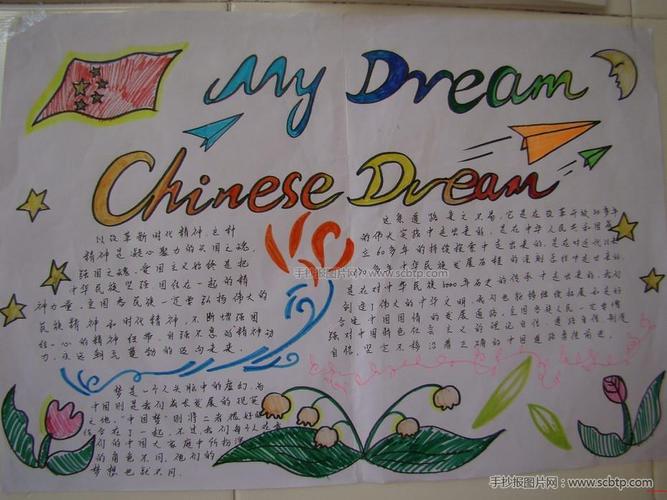 My Dream
Chinese Dream
以改革新时代精神，这种
精神是凝心聚力的兴国之魂，
强国之魂。爱国主义始终是把
中华民族坚强团结在一起的精
神力量，全国各民族一定要弘扬伟大的
民族精神和时代精神，不断增强团
结一心的精神纽带、自强不息的精神动
力，永远朝气蓬勃迈向未来。
这条道路来之不易，它是在改革开放30多年
的伟大实践中走出来的，是在中华人民共和国成
立60多年的持续探索中走出来的，是在对近代以来
中华民族发展历程的深刻总结中走出来的，
是在对中华民族5000年历史的传承中走出来的。我们
创造了伟大的中华文明，我们也能够继续拓展和走好
适合中国国情的发展道路。全国各族人民一定要增
强对中国特色社会主义的理论自信、道路自信、制度
自信，坚定不移沿着正确的中国道路奋勇前进。
梦是一个人头脑中的虚幻，而
中国则是我们成长发展的现实
之地。“中国梦”则将二者很好的
结合在一起，不过我们每个人在我
们的中国大家庭中所扮演
的角色不同，他们的
梦想也就不同。
手抄报图片网 www.scbtp.com
手抄报图片网：www.scbtp.com